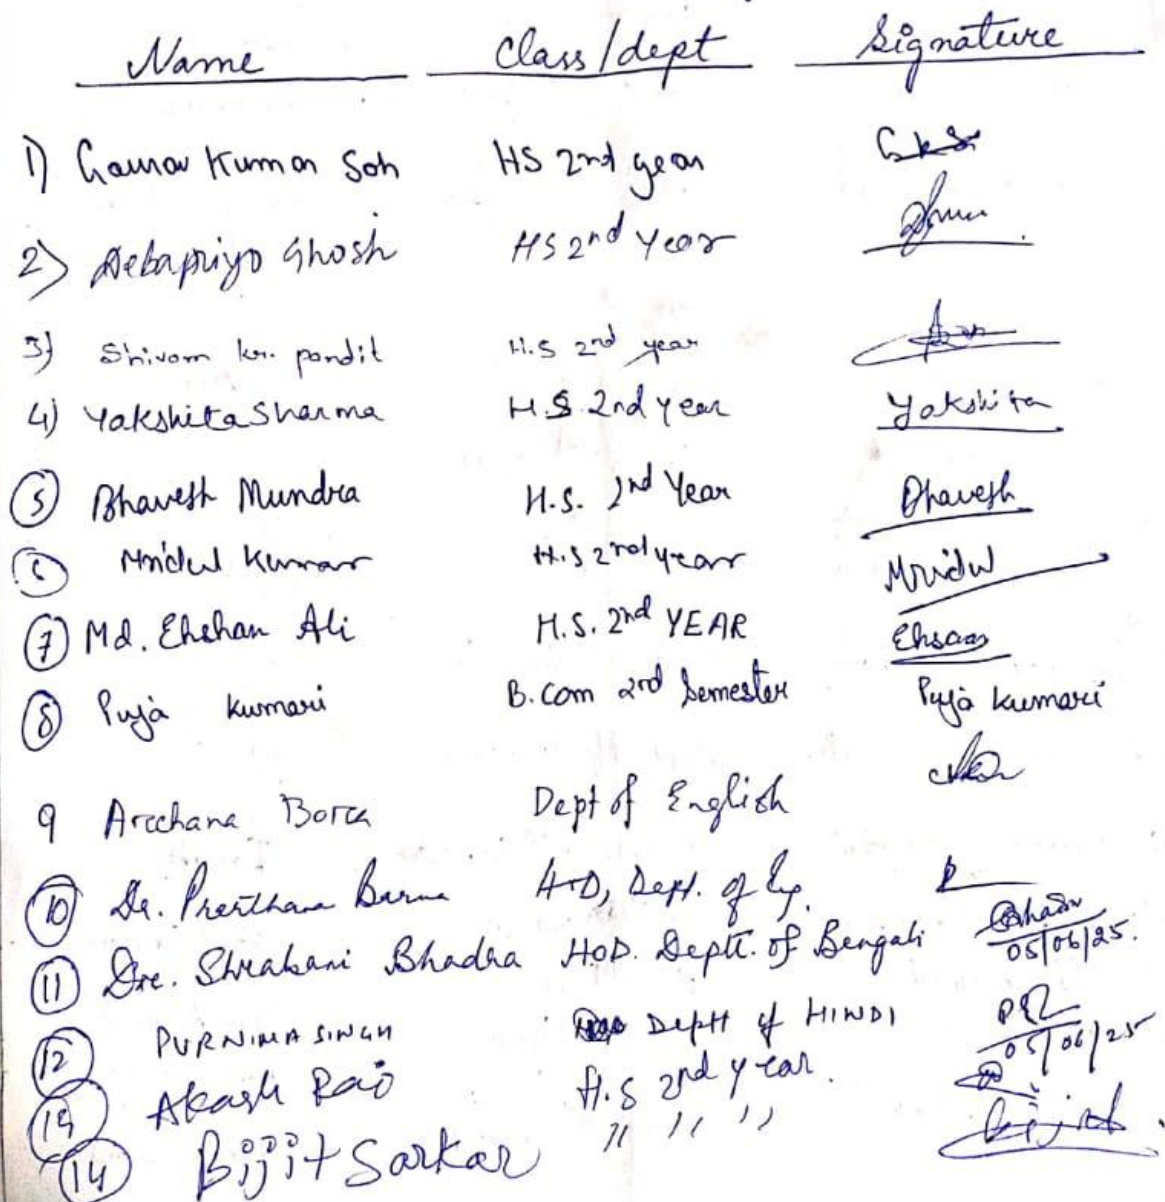 Name Class/dept Signature
1) Gaurav Kumar Sah HS 2nd year
2) Debapriyo Ghosh HS 2nd Year
3) Shivam kr. pandit H.S 2nd year
4) Yakshita Sharma H.S. 2nd year Yakshita
5 Bhavesh Mundra H.S. 2nd Year Bhavesh
6 Mridul Kumar H.S 2nd year Mridul
7 Md. Ehshan Ali H.S. 2nd YEAR Ehsaan
8 Puja kumari B.Com 2nd Semester Puja kumari
9 Archana Bora Dept of English
10 Dr. Prarthana Barua HoD, Dept. of
11 Dr. Shrabani Bhadra HOD. Deptt. of Bengali 05/06/25.
12 PURNIMA SINGH Deptt of HINDI 05/06/25
Akash Rao H.S 2nd year.
14 Bijit Sarkar " " " Bijit